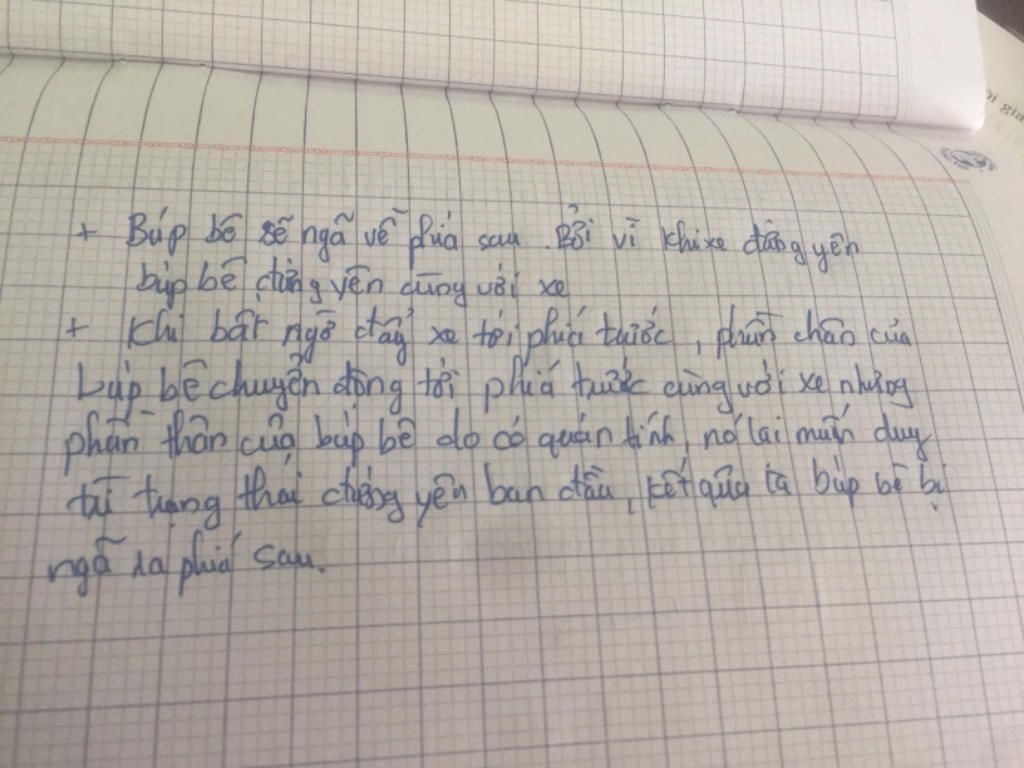 + Búp bê sẽ ngã về phía sau. Bởi vì khi xe đứng yên
búp bê đứng yên cùng với xe
+ Khi bất ngờ đẩy xe tới phía trước, phần chân của
búp bê chuyển động tới phía trước cùng với xe nhưng
phần thân của búp bê do có quán tính, nó lại muốn duy
trì trạng thái đứng yên ban đầu, kết qủa là búp bê bị
ngã ra phía sau.